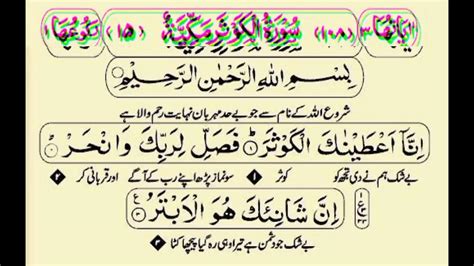 اٰيَاتُهَا ٣ (١٠٨) سُوْرَةُ الْكَوْثَرِ مَكِّيَّةٌ (١٥) رُكُوْعُهَا ١
بِسْمِ اللّٰهِ الرَّحْمٰنِ الرَّحِيْمِ
شروع اللہ کے نام سے جو بے حد مہربان نہایت رحم والا ہے
اِنَّآ اَعْطَيْنٰكَ الْكَوْثَرَ ۝ فَصَلِّ لِرَبِّكَ وَ انْحَرْ ۝
بے شک ہم نے دی تجھ کو کوثر ١ سو نماز پڑھ اپنے رب کے آگے اور قربانی کر ٢
اِنَّ شَانِئَكَ هُوَ الْاَبْتَرُ ۝
بے شک جو دشمن ہے تیرا وہی رہ گیا پیچھا کٹا ٣